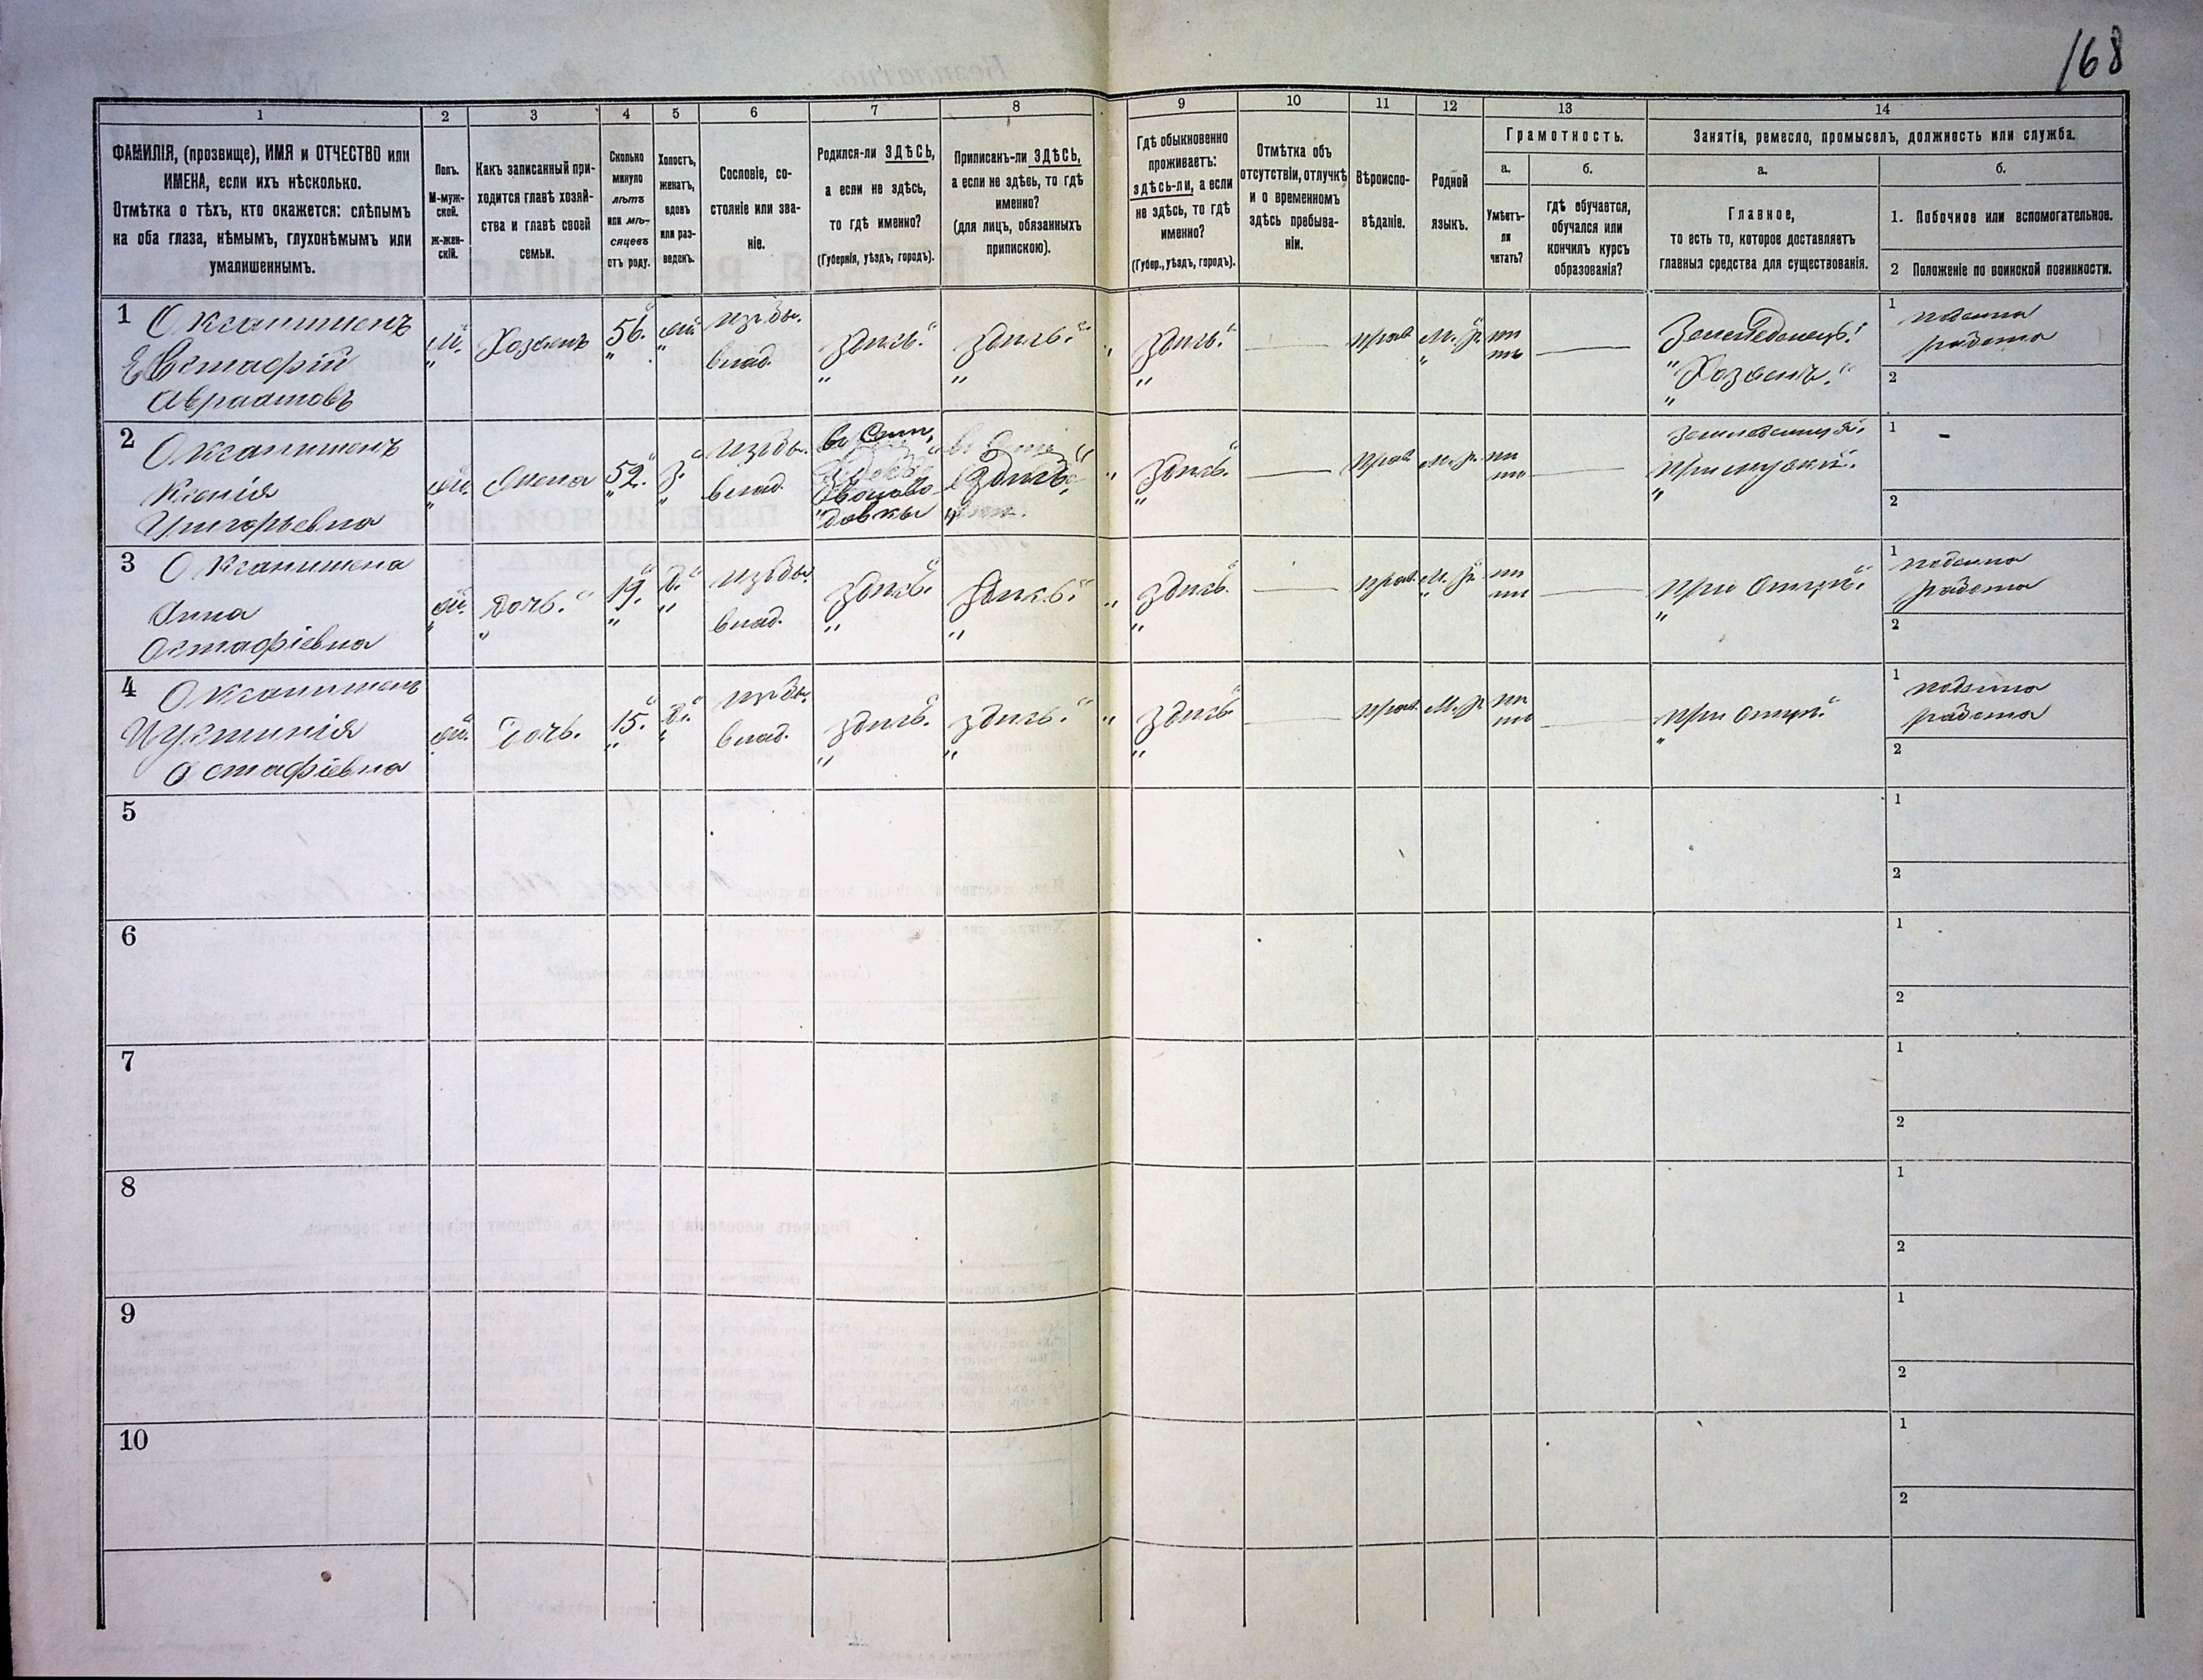 168
1
2
3
4
5
6
7
8
9
10
11
12
13
14
ФАМИЛІЯ, (прозвище), ИМЯ и ОТЧЕСТВО или
ИМЕНА, если ихъ нѣсколько.
Отмѣтка о тѣхъ, кто окажется: слѣпымъ
на оба глаза, нѣмымъ, глухонѣмымъ или
умалишеннымъ.
Полъ.
М-муж-
ской.
Ж-жен-
скій.
Какъ записанный при-
ходится главѣ хозяй-
ства и главѣ своей
семьи.
Сколько
минуло
лѣтъ
или мѣ-
сяцевъ
отъ роду.
Холостъ,
женатъ,
вдовъ
или раз-
веденъ.
Сословіе, со-
стояніе или зва-
ніе.
Родился-ли ЗДѢСЬ,
а если не здѣсь,
то гдѣ именно?
(Губернія, уѣздъ, городъ).
Приписанъ-ли ЗДѢСЬ,
а если не здѣсь, то гдѣ
именно?
(для лицъ, обязанныхъ
припискою).
Гдѣ обыкновенно
проживаетъ:
здѣсь-ли, а если
не здѣсь, то гдѣ
именно?
(Губер., уѣздъ, городъ).
Отмѣтка объ
отсутствіи, отлучкѣ
и о временномъ
здѣсь пребыва-
ніи.
Вѣроиспо-
вѣданіе.
Родной
языкъ.
Грамотность.
а.
Умѣетъ-
ли
читать?
б.
гдѣ обучается,
обучался или
кончилъ курсъ
образованія?
Занятіе, ремесло, промыселъ, должность или служба.
а.
Главное,
то есть то, которое доставляетъ
главныя средства для существованія.
б.
1. Побочное или вспомогательное.
2 Положеніе по воинской повинности.
1
Евстафій
Аврамовъ
М.
Хозяинъ
56.
изъ бы.
влад.
здѣсь.
здѣсь.
здѣсь.
прав.
М. р.
не
тъ
Земледѣлецъ.
Хозяинъ.
1 поденна
работа
2
2
Ксенія
Григорьевна
ж.
Жена
52.
З.
изъ бы.
влад.
здѣсь
здѣсь.
прав.
М. р.
1
2
3
Анна
Остафіевна
ж.
дочь.
19.
Д.
изъ бы.
влад.
здѣсь.
здѣсь.
здѣсь.
прав.
М. р.
при отцѣ.
1 поденна
работа
2
4
Иустинія
Остафіевна
ж.
дочь.
15.
Д.
изъ бы.
влад.
здѣсь.
здѣсь.
здѣсь
прав.
М. р.
при отцѣ.
1 поденна
работа
2
5
1
2
6
1
2
7
1
2
8
1
2
9
1
2
10
1
2